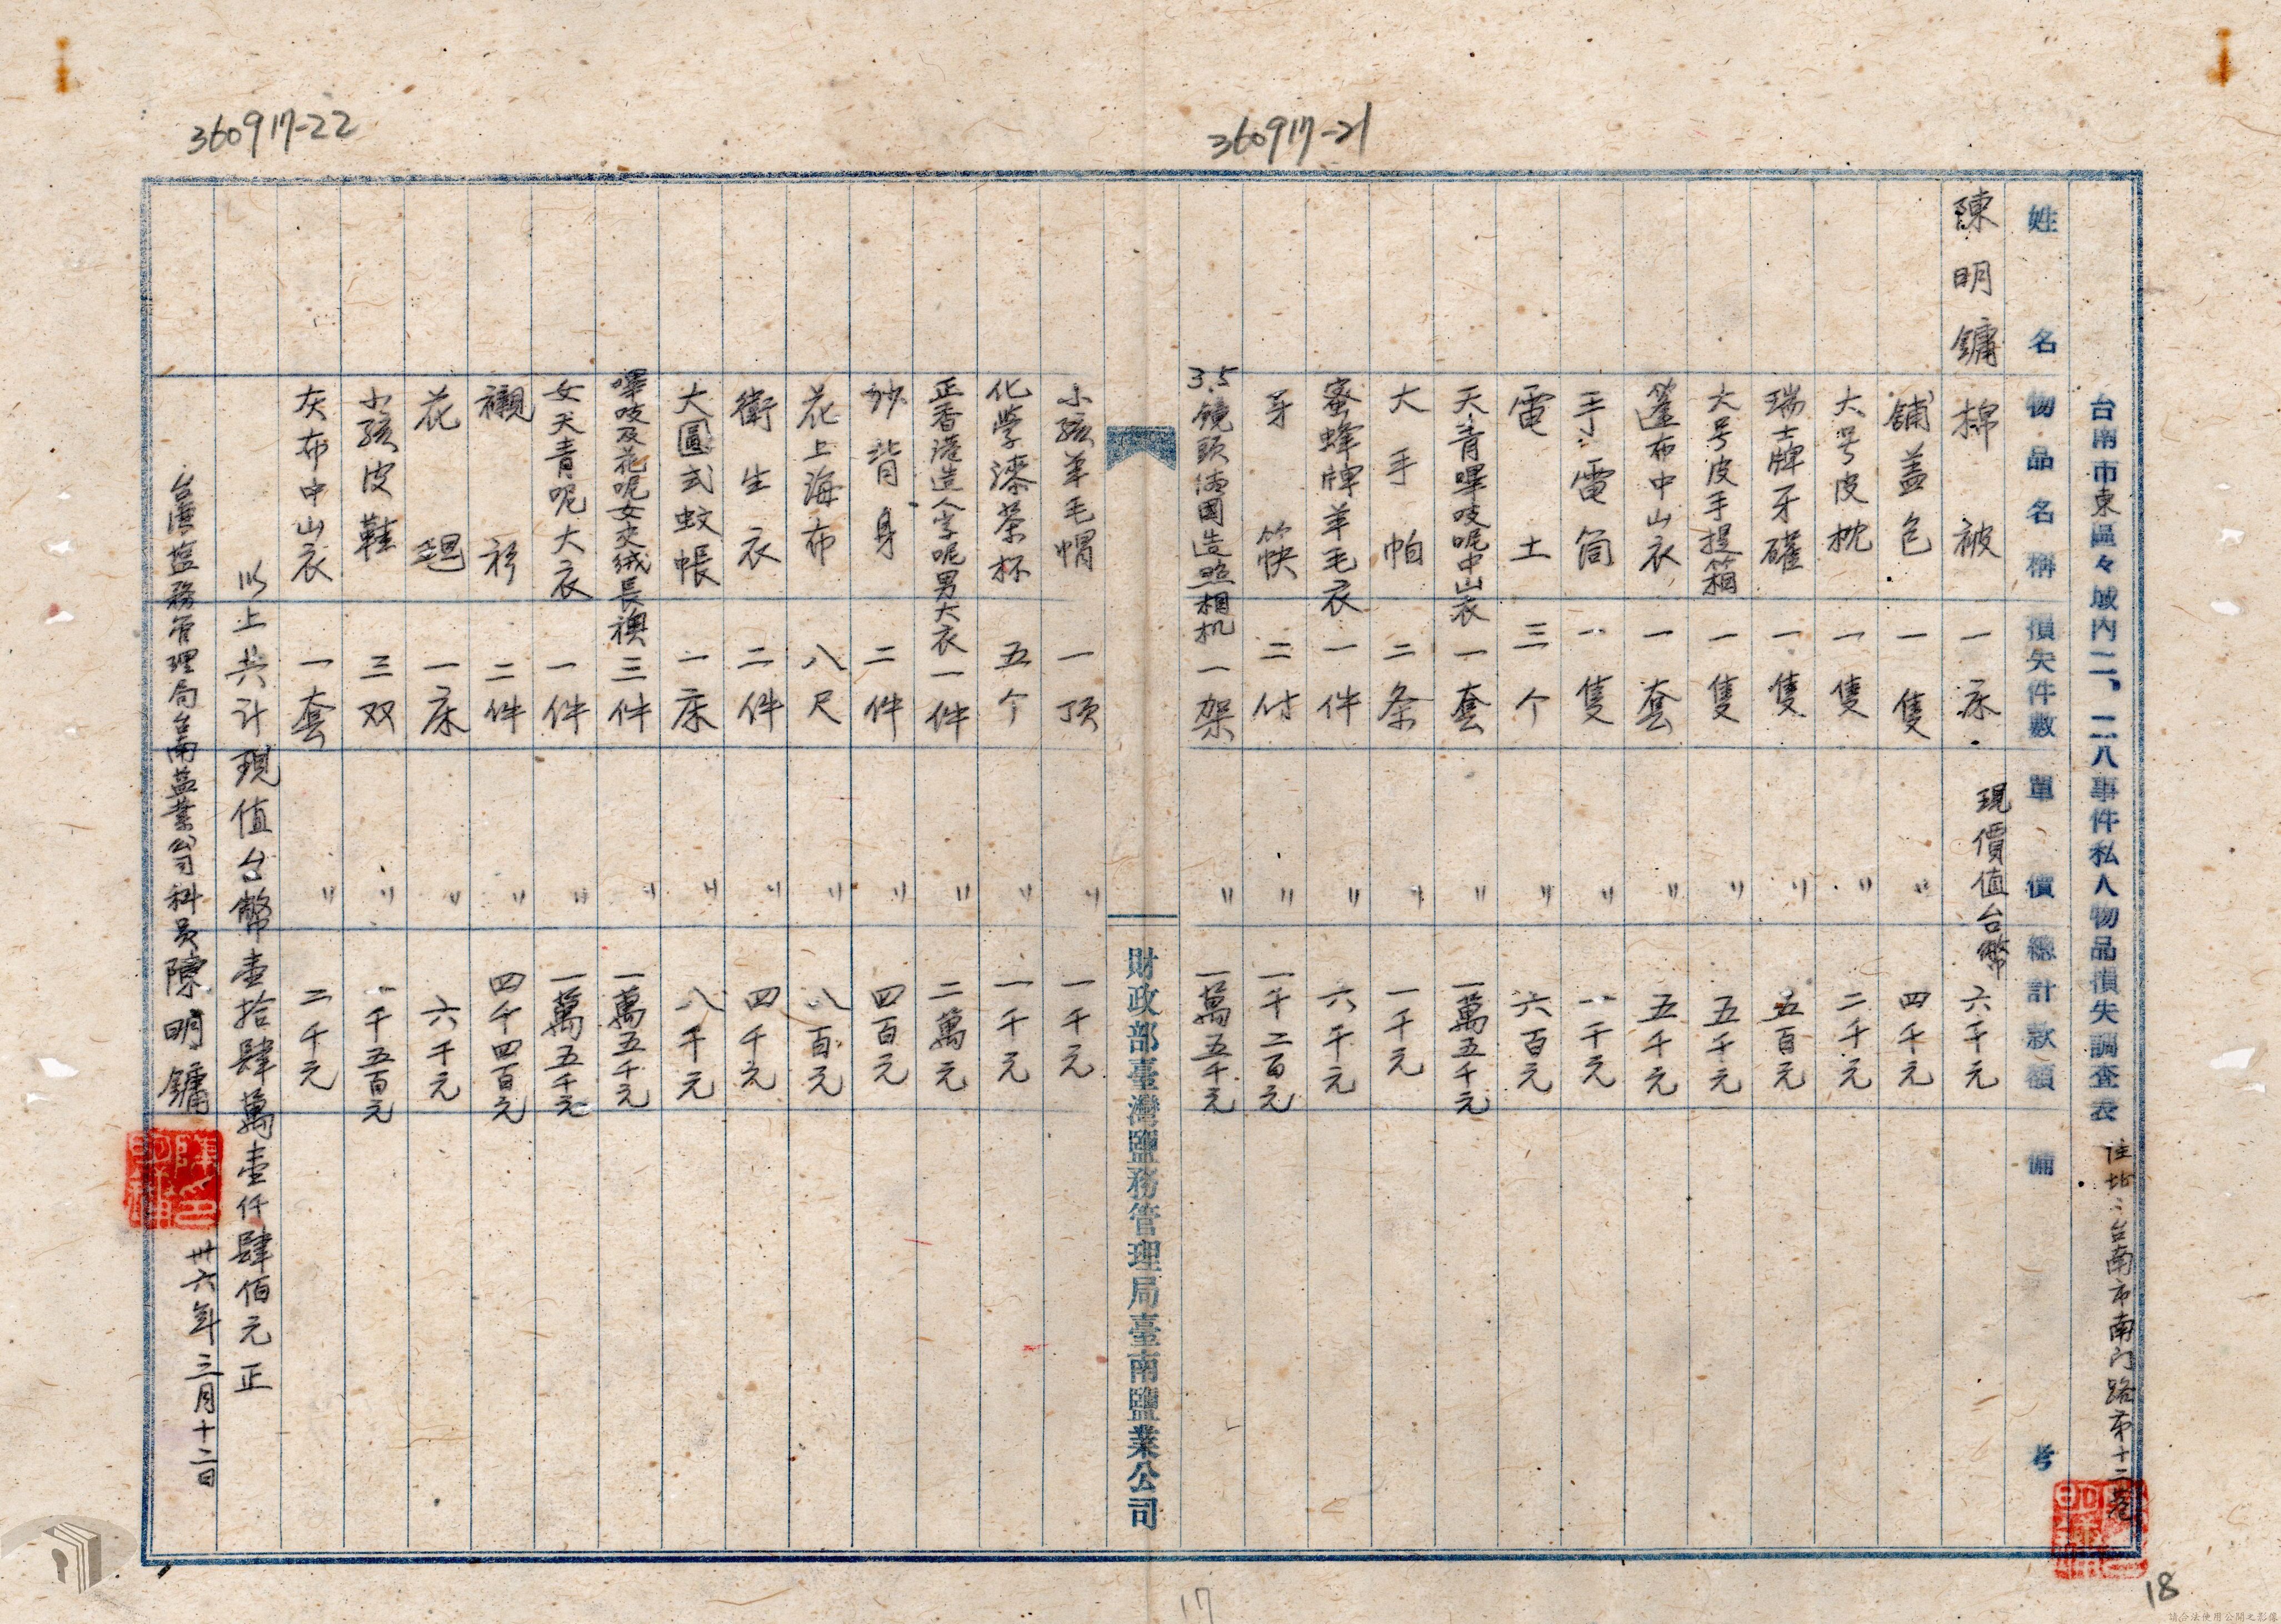 360917-21
台南市東區々域內二、二八事件私人物品損失調查表 住址：台南市南门路第十二巷
姓名 物品名稱 損失件數 單價 總計款額 備考
陳明鏞 棉被 一床 現價值台幣 六千元
舖盖包 一隻 〃 四千元
大号皮枕 一隻 〃 二千元
瑞士牌牙礶 一隻 〃 五百元
大号皮手提箱 一隻 〃 五千元
篷布中山衣 一套 〃 五千元
手電筒 一隻 〃 一千元
電土 三个 〃 六百元
天青嗶吱呢中山衣 一套 〃 一萬五千元
大手帕 二条 〃 一千元
蜜蜂牌羊毛衣 一件 〃 六千元
牙筷 二付 〃 一千二百元
3.5鏡頭德國造照相机 一架 〃 一萬五千元
財政部臺灣鹽務管理局臺南鹽業公司
360917-22
小孩羊毛帽 一頂 〃 一千元
化學漆茶杯 五个 〃 一千元
正香港造人字呢男大衣 一件 〃 二萬元
紗背身 二件 〃 四百元
花上海布 八尺 〃 八百元
衛生衣 二件 〃 四千元
大圓式蚊帳 一床 〃 八千元
嗶吱及花呢女交絨長襖 三件 〃 一萬五千元
女天青呢大衣 一件 〃 一萬五千元
襯衫 二件 〃 四千四百元
花毯 一床 〃 六千元
小孩皮鞋 三双 〃 一千五百元
灰布中山衣 一套 〃 二千元
以上共计現值台幣壹拾肆萬壹仟肆佰元正
台灣盐務管理局台南盐業公司科員陳明鏞 卅六年三月十二日
17
18
請合法使用公開之影像